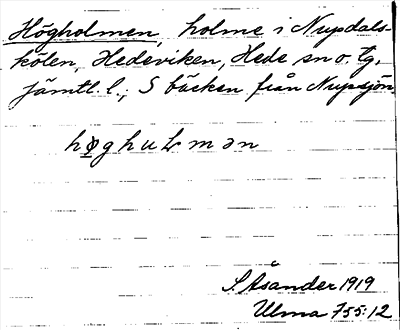 Högholmen, holme i Nupdals-
kölen, Hedeviken, Hede sn o. tg,
Jämtl. l.; S bäcken från Nupsjön.
høghuLmən
S Åsander 1919
Ulma 755:12